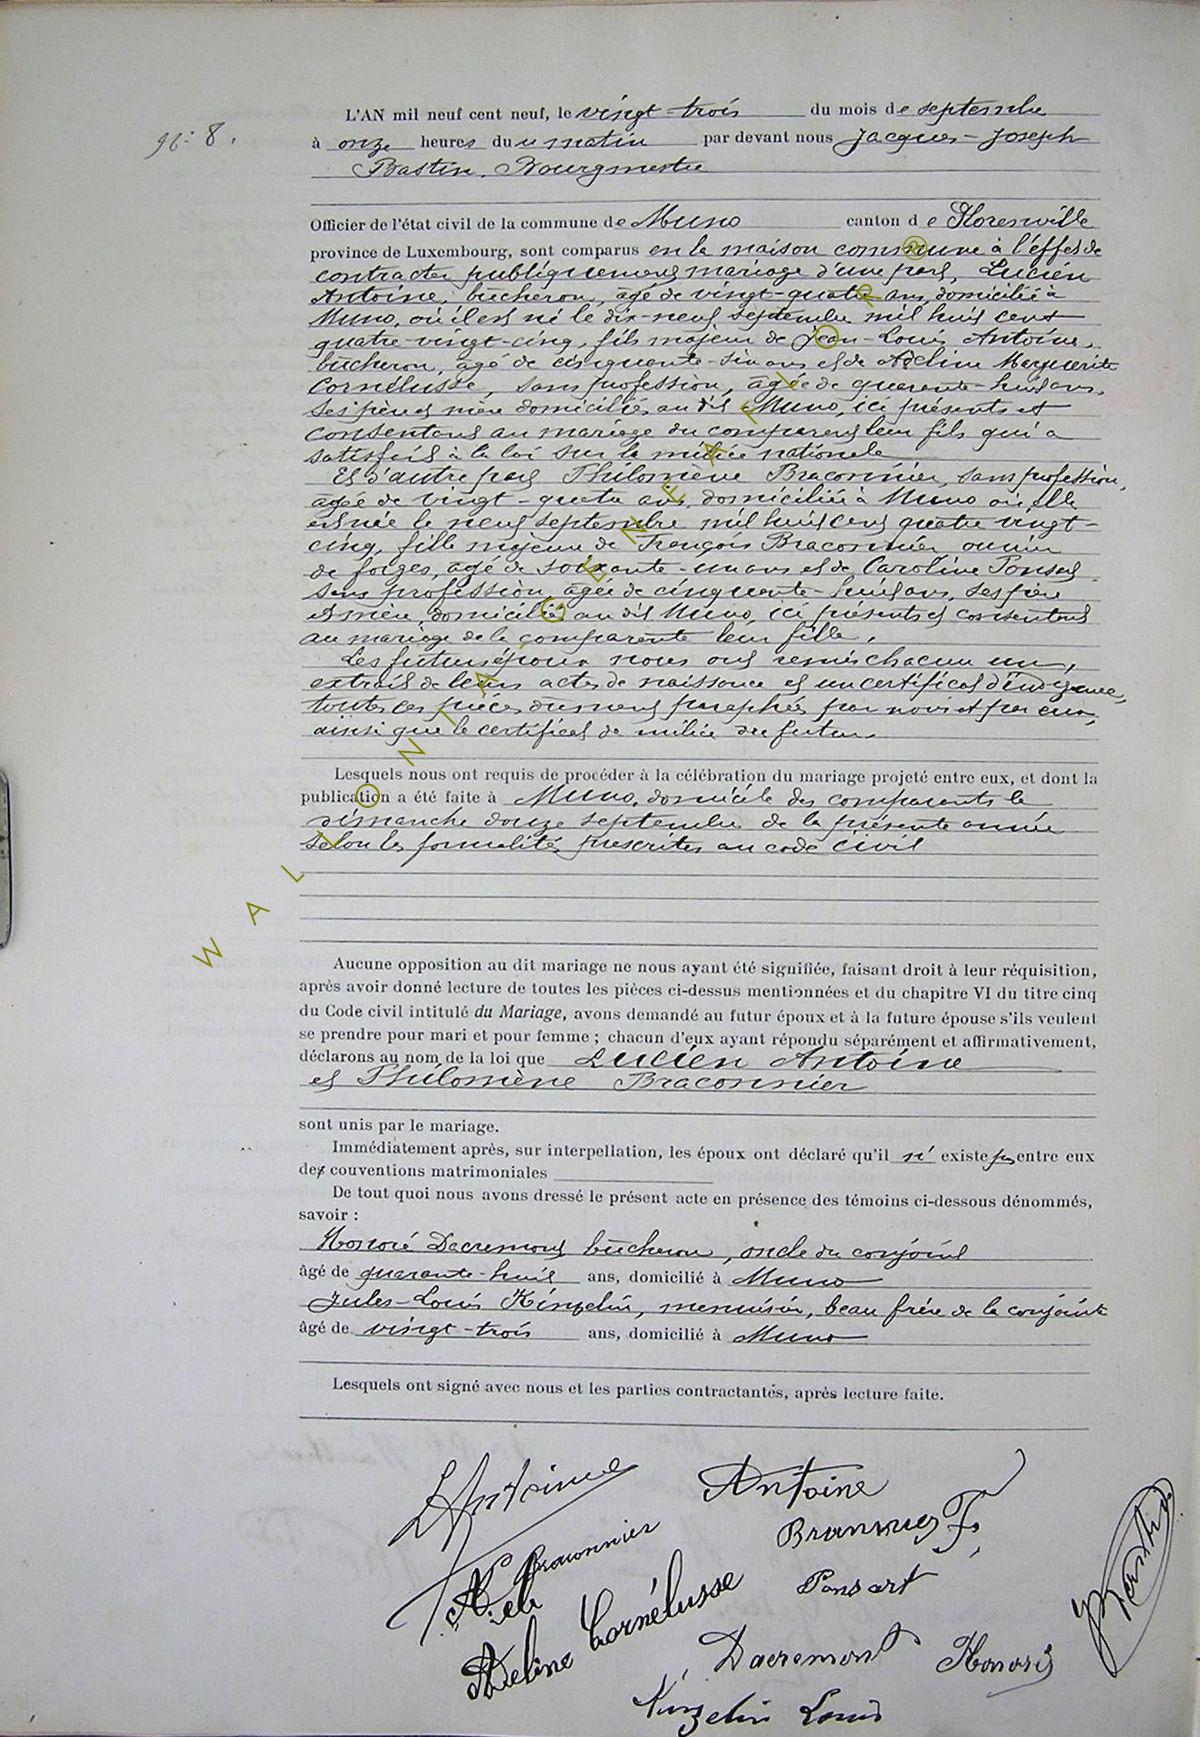 N° 8.
L'AN mil neuf cent neuf, le vingt-trois du mois de septembre
à onze heures du matin par devant nous Jacques-Joseph
Bastin, Bourgmestre
Officier de l'état civil de la commune de Muno canton de Florenville
province de Luxembourg, sont comparus en la maison commune à l'effet de
contracter publiquement mariage d'une part, Lucien
Antoine, bûcheron, agé de vingt-quatre ans, domicilié à
Muno, où il est né le dix-neuf septembre mil huit cent
quatre-vingt-cinq, fils majeur de Jean-Louis Antoine,
bûcheron, agé de cinquante-six ans et de Adeline Marguerite
Cornélusse, sans profession, agée de quarante-huit ans,
ses père et mère domiciliés au dit Muno, ici présents et
consentant au mariage du comparant leur fils qui a
satisfait à la loi sur la milice nationale
Et d'autre part Philomène Braconnier, sans profession,
agée de vingt-quatre ans, domiciliée à Muno où elle
est née le neuf septembre mil huit cent quatre vingt-
cinq, fille majeure de François Braconnier, ouvrier
de forges, agé de soixante-un ans et de Caroline Ponsart
sans profession, agée de cinquante-huit ans, ses père
et mère, domiciliés au dit Muno, ici présents et consentant
au mariage de la comparante leur fille.
Les futurs époux nous ont remis chacun un
extrait de leurs actes de naissance et un certificat d'indigence,
toutes ces pièces dûment paraphées par nous et par eux,
ainsi que le certificat de milice du futur.
Lesquels nous ont requis de procéder à la célébration du mariage projeté entre eux, et dont la
publication a été faite à Muno, domicile des comparants le
dimanche douze septembre de la présente année
selon les formalités prescrites au code civil
Aucune opposition au dit mariage ne nous ayant été signifiée, faisant droit à leur réquisition,
après avoir donné lecture de toutes les pièces ci-dessus mentionnées et du chapitre VI du titre cinq
du Code civil intitulé du Mariage, avons demandé au futur époux et à la future épouse s'ils veulent
se prendre pour mari et pour femme ; chacun d'eux ayant répondu séparément et affirmativement,
déclarons au nom de la loi que Lucien Antoine
et Philomène Braconnier
sont unis par le mariage.
Immédiatement après, sur interpellation, les époux ont déclaré qu'il n' existe pas entre eux
de conventions matrimoniales
De tout quoi nous avons dressé le présent acte en présence des témoins ci-dessous dénommés,
savoir :
Honoré Dacremont, bûcheron, oncle du conjoint
âgé de quarante-huit ans, domicilié à Muno
Jules-Louis Kinzelin, menuisier, beau frère de la conjointe
âgé de vingt-trois ans, domicilié à Muno
Lesquels ont signé avec nous et les parties contractantes, après lecture faite.
L Antoine Antoine
Braconnier F.
Braconnier
Ponsart
Adeline Cornélusse
Dacremont Honoré
Kinzelin Louis
WALLONIA GENEALOPRO